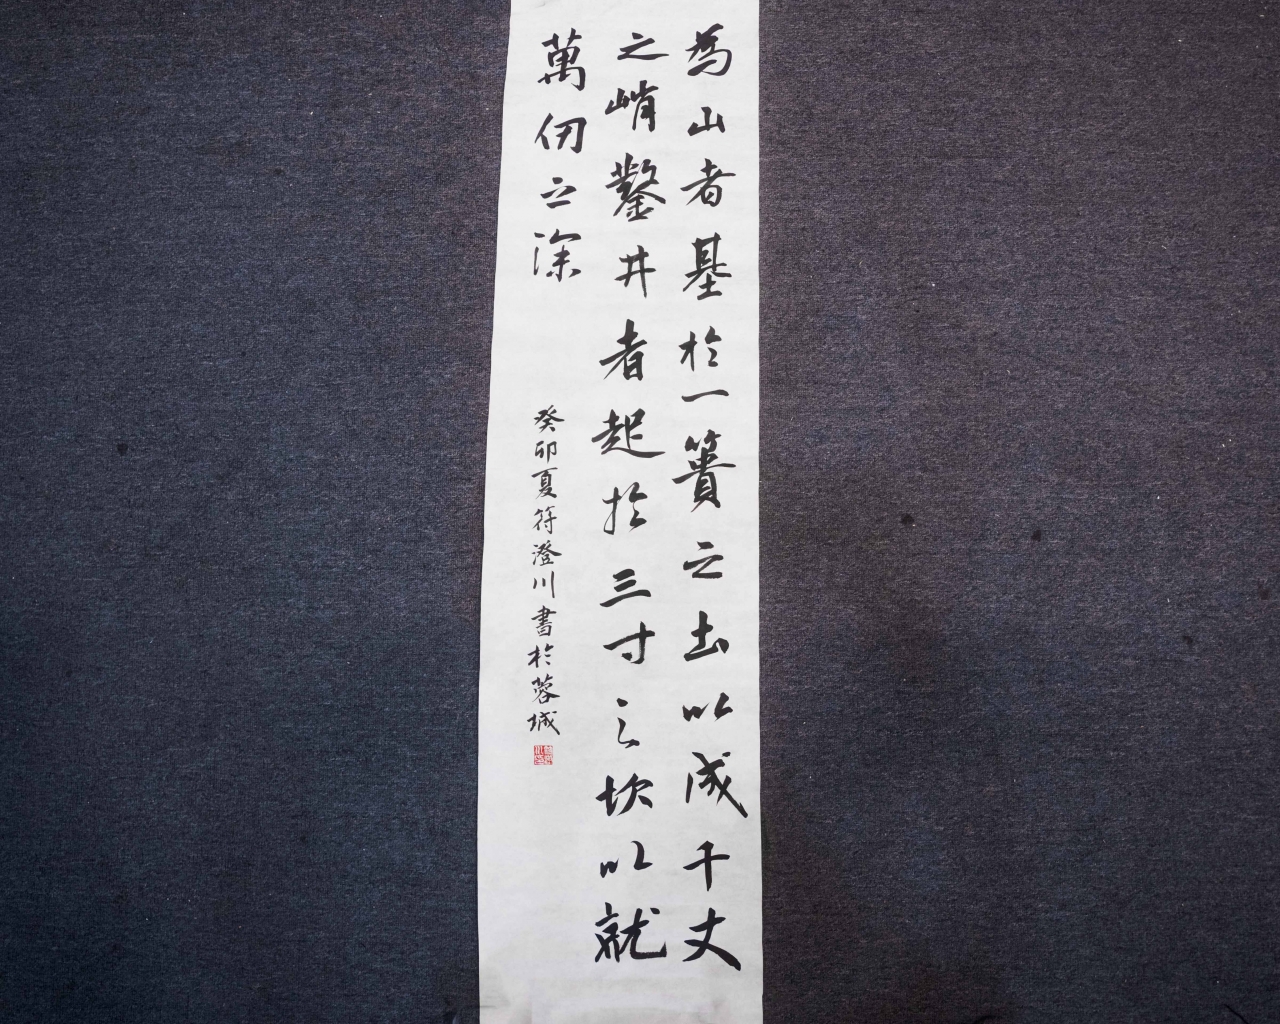 為山者基於一簣之土以成千丈
之峭鑿井者起於三寸之坎以就
萬仞之深
癸卯夏符澄川書於蓉城